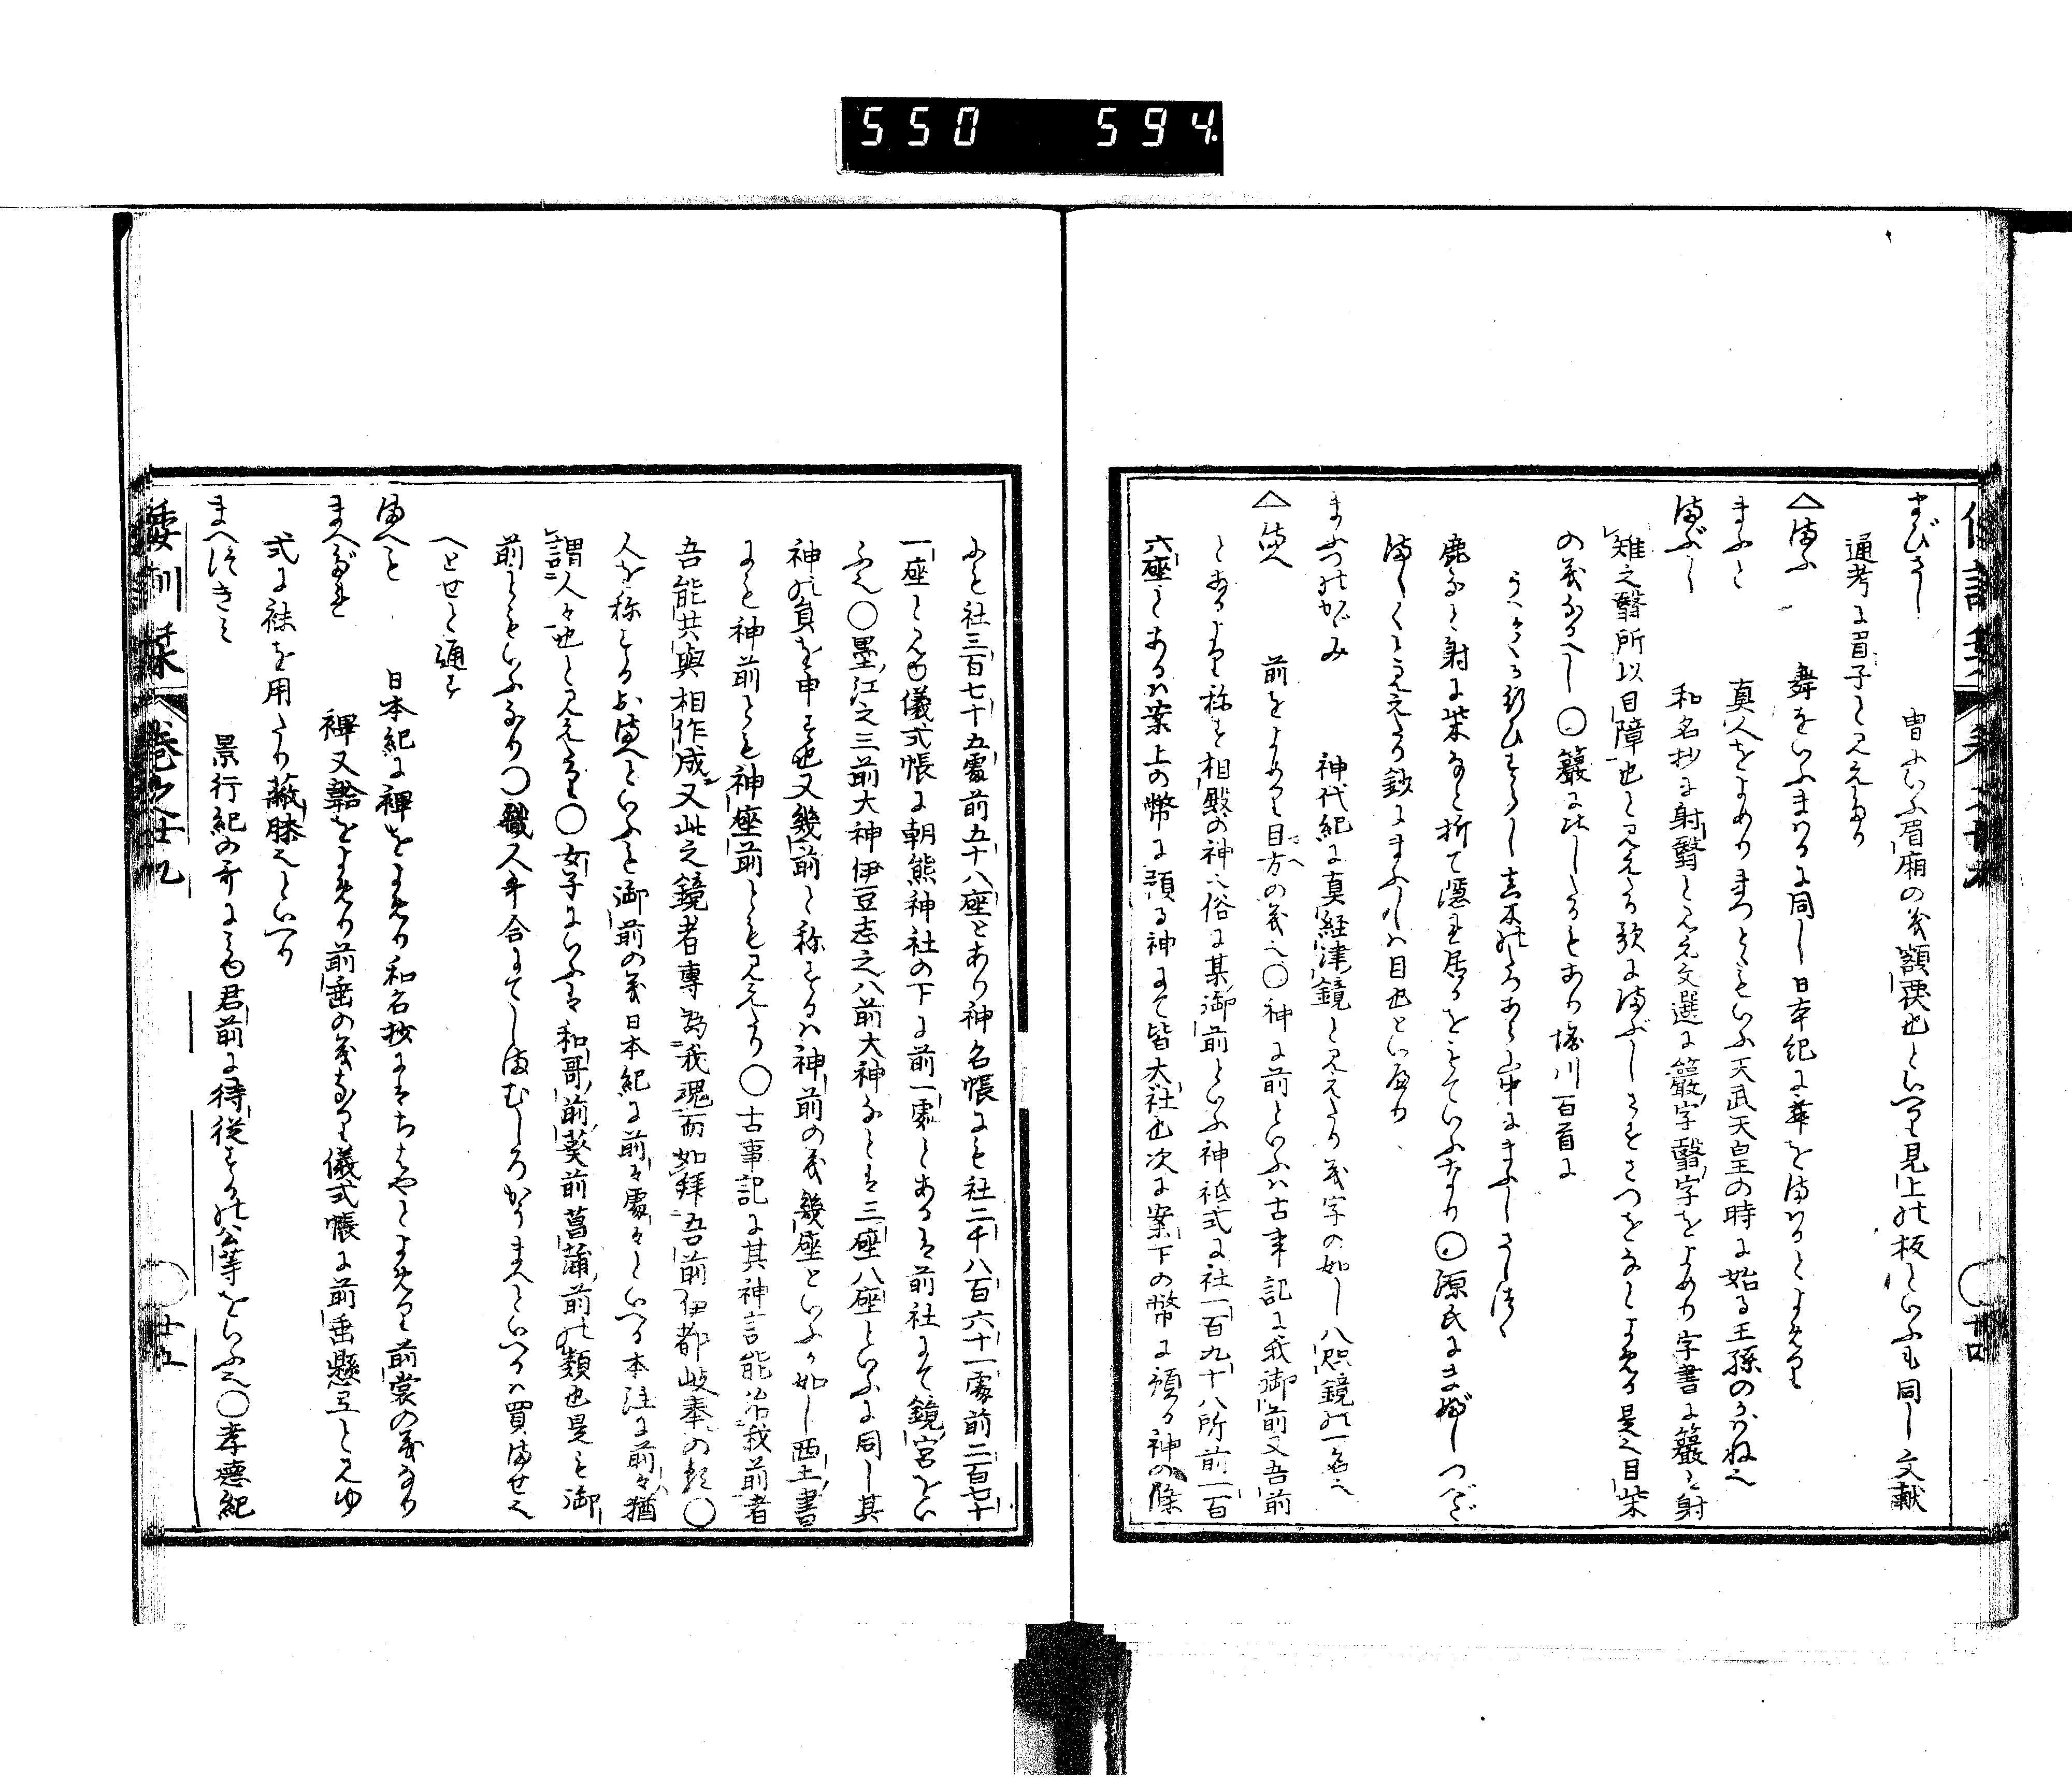 550 594
まびさし 冑にいふ眉廂の義額猨也といへり見上の板といふも同し文献
通考に眉子と見えたり
△まふ 舞をいふまはるに同し日本紀に舞をまはるとよめり
まふと 真人をよめりまつとともいふ天武天皇の時に始る王孫のかばね也
まぶし 和名抄に射翳と見え文選に翳字をよめり字書に射
雉之翳所以目障也と見えたり歌にまぶしさすさつをなとよめる是也目柴
の義なるへし○簇に比したるもあり堀川百首に
鹿なと射に柴なと折て隠れ居るをもていふなり○源氏にまぶしつべた
ましくと見えたり鈔にまふしは目也といへり
まふつのかゞみ 神代紀に真経津鏡と見えたり義字の如し八咫鏡の一名也
△まへ 前をよめり目方の義也○神に前といふは古事記に我御前又吾前
とあるより称す相殿の神に俗に某御前といふ神祇式に社一百九十八所前一百
六座とあるは案上の幣に預る神にて皆大社也次に案下の幣に預る神の條
にも社三百七十五處前五十八座とあり神名帳にも社二千八百六十一處前二百七十
一座と見ゆ儀式帳に朝熊神社の下に前一處とあるは前社にて鏡宮をい
ふ也○墨江之三前大神伊豆志之八前大神なとは三座八座といふに同し其
神の負を申す也又幾前と称するは神前の義幾座といふか如し西土書
にも神前とも神座前とも見えたり○古事記に其神言能治我前者
吾能共與相作成又此之鏡者專為我魂而如拜吾前伊都岐奉の類○
人を称するおまへといふも御前の義日本紀に前々處々といへる本注に前々猶
謂人々也と見えたり○女子にいふは和哥前葵前菖蒲前の類也是も御
前ともいふなり○職人尽合にてしまむしろかうまへといへるは買ませ也
へとせと通す
まへも 日本紀に襅をよめり和名抄にはちはやとよめり前裳の義なり
まへだれ 襅又韐をよめり前垂の義なり儀式帳に前垂懸弖と見ゆ
式に袜を用たり蔽膝也といへり
まへつきみ 景行紀の哥に見ゆ君前に待従するの公等をいふ也○孝徳紀
倭訓栞 巻之廿九 廿五